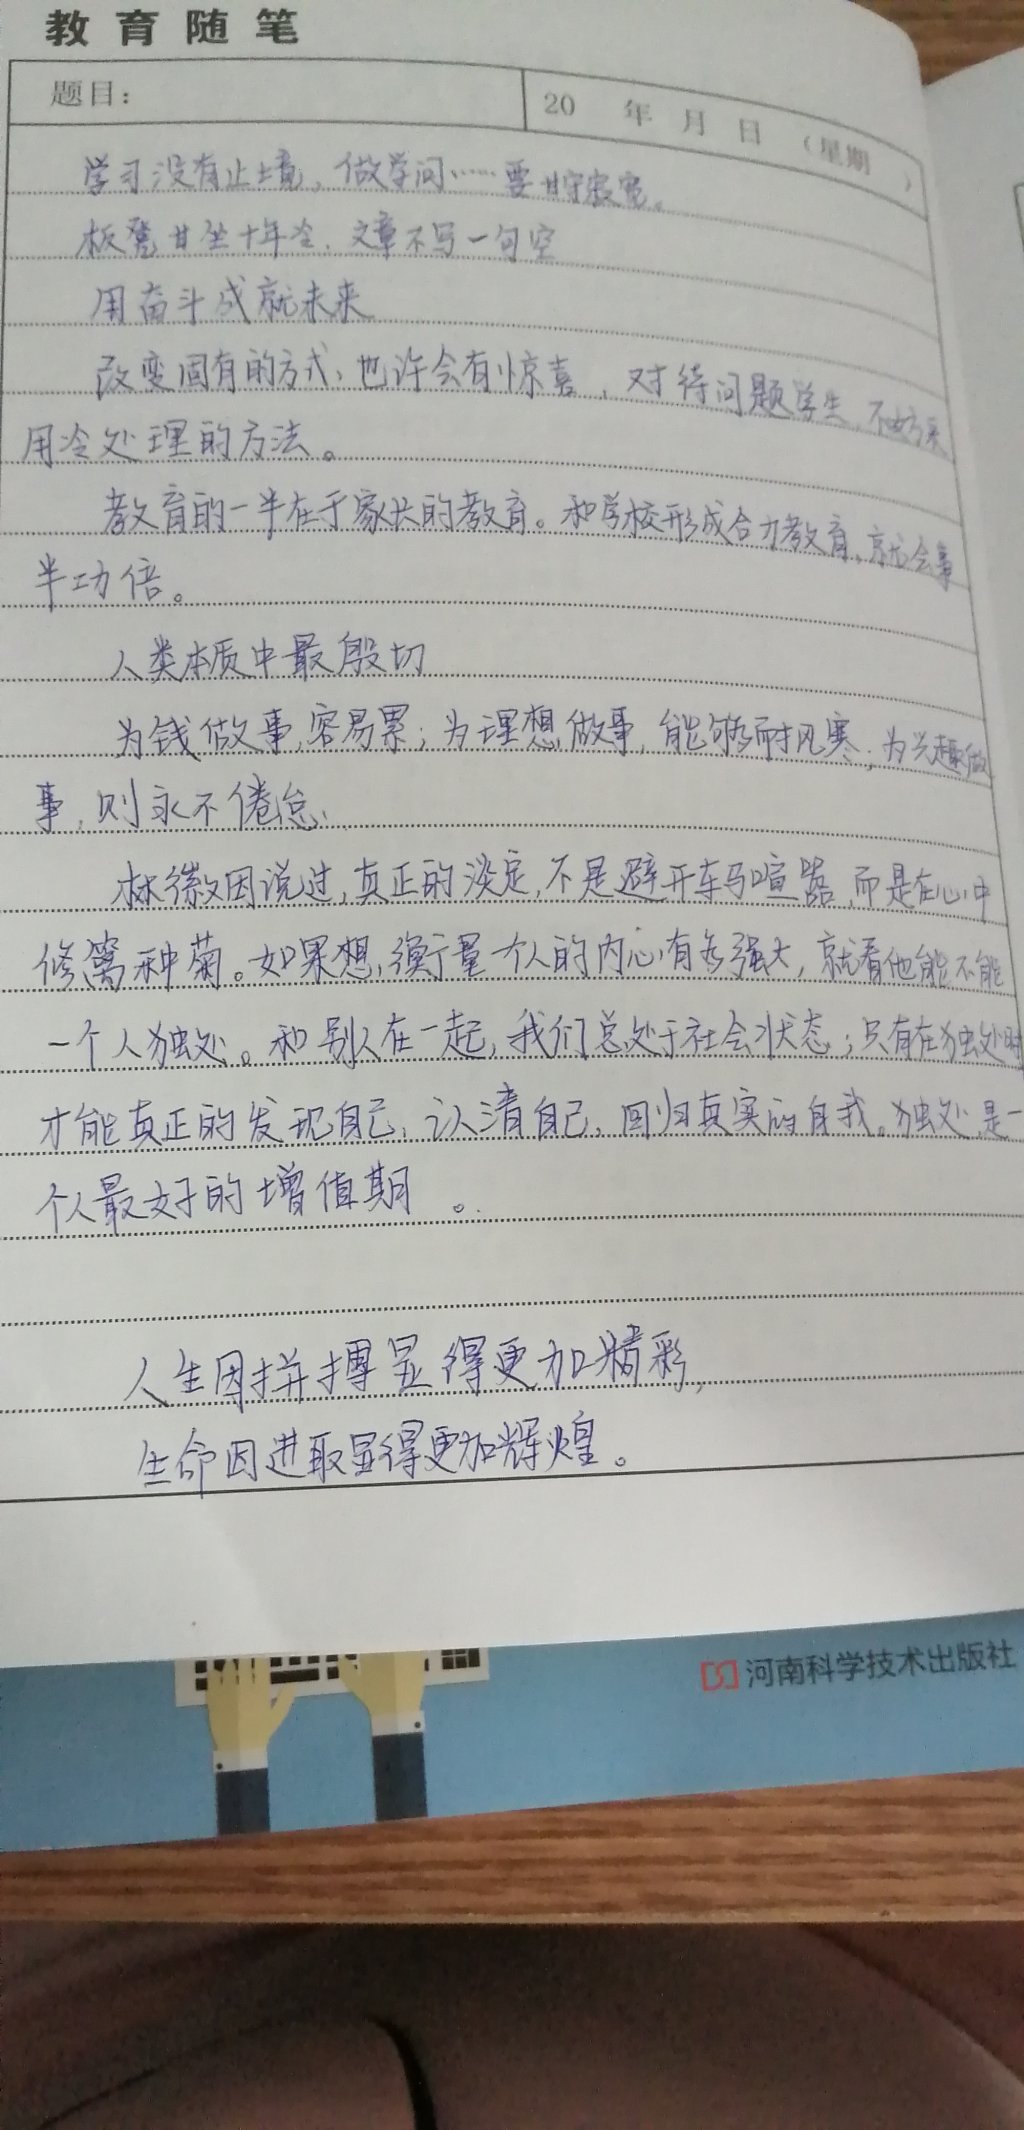 教育随笔
题目： 20 年 月 日 （星期 ）
学习没有止境，做学问……要甘守寂寞。
板凳甘坐十年冷，文章不写一句空
用奋斗成就未来
改变固有的方式，也许会有惊喜，对待问题学生，不妨采
用冷处理的方法。
教育的一半在于家长的教育。和学校形成合力教育，就会事
半功倍。
人类本质中最殷切
为钱做事，容易累；为理想做事，能够耐风寒；为兴趣做
事，则永不倦怠。
林徽因说过，真正的淡定，不是避开车马喧嚣，而是在心中
修篱种菊。如果想，衡量一个人的内心有多强大，就看他能不能
一个人独处。和别人在一起，我们总处于社会状态；只有在独处时
才能真正的发现自己，认清自己，回归真实的自我。独处，是一
个人最好的增值期。
人生因拼搏显得更加精彩，
生命因进取显得更加辉煌。
河南科学技术出版社